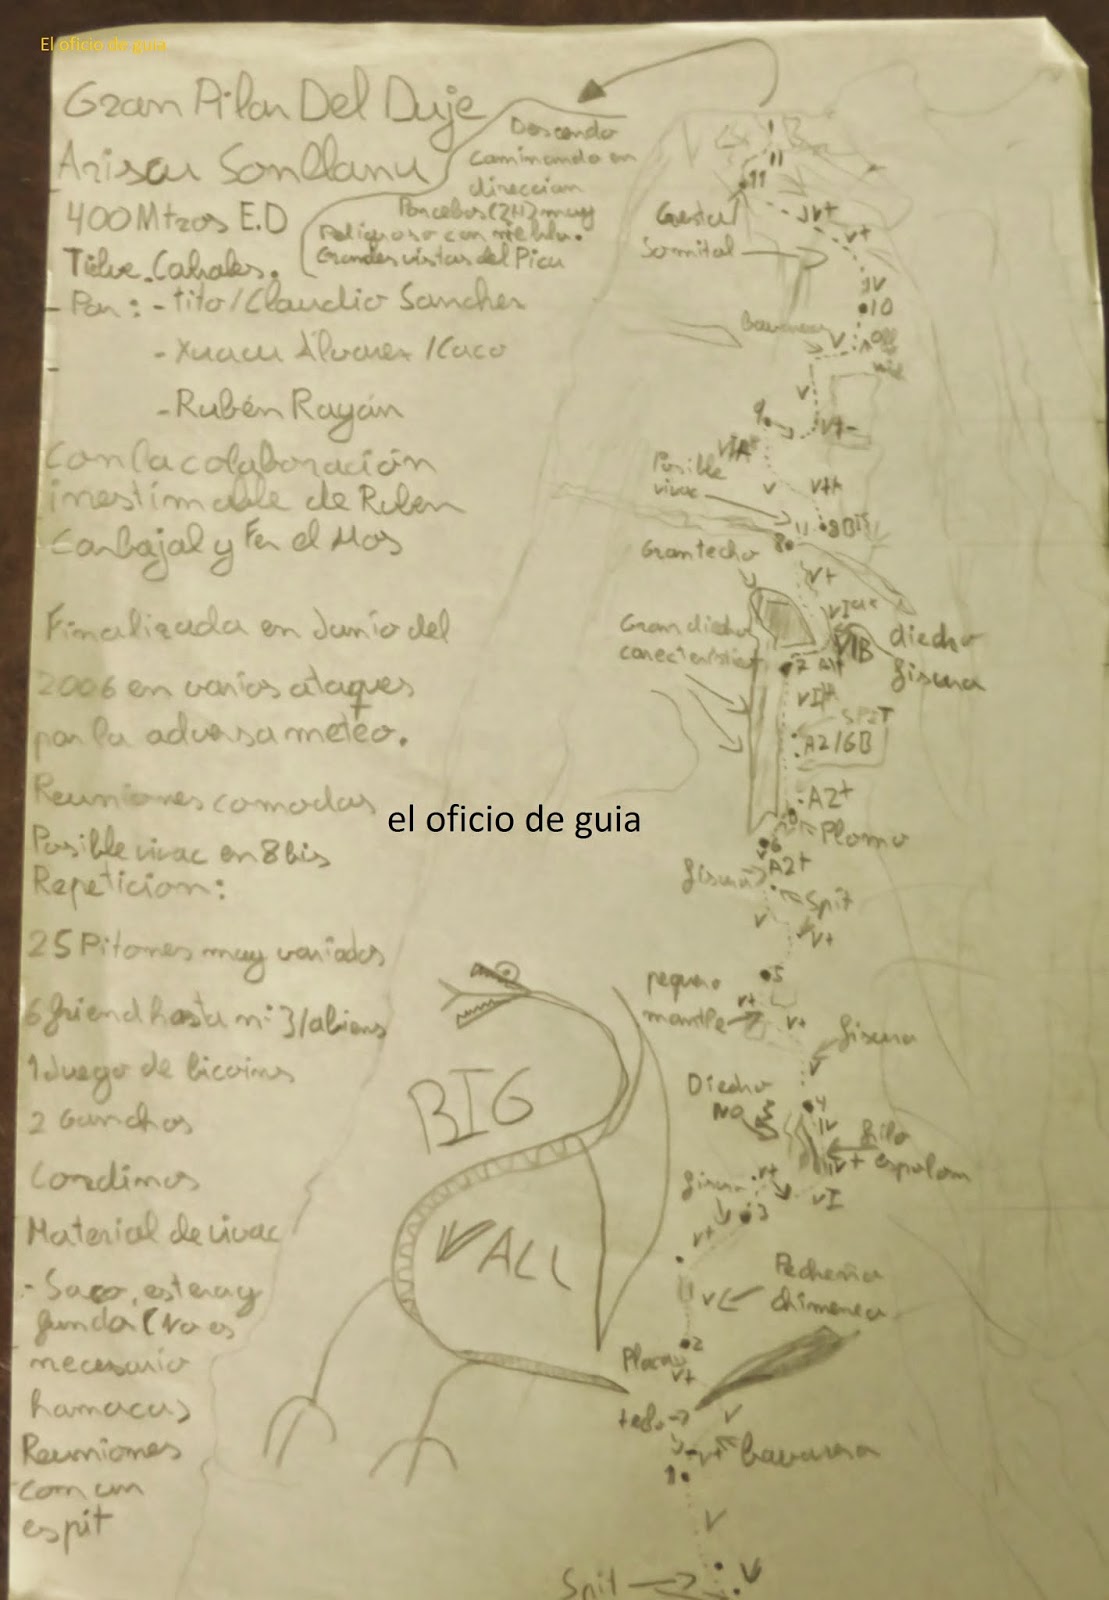 El oficio de guia
Gran Pilar Del Duje
Arisau Sonllanu
400 Mtros E.D
Descenso
caminando en
direccion
Poncebos (2H) muy
Peligroso con niebla.
Grandes vistas del Picu
Cabrales.
- Por: - Tito/Claudio Sanchez
- Xuacu Álvarez / Kaco
- Rubén Rayán
Con la colaboración
inestimable de Ruben
Carbajal y Fer el Mos
Finalizada en Junio del
2006 en varios ataques
por la adversa meteo.
Reuniones comodas
Posible vivac en 8 bis
Repeticion:
25 Pitones muy variados
6 friend hasta nº 3/aliens
1 Juego de bicoins
2 Ganchos
Cordinos
Material de vivac
- Saco, estera y
funda (No es
necesario
hamacas)
Reuniones
con un
espit
el oficio de guia
BIG
WALL
11
Crestal
Somital
V+
V+
IV
10
Off
V
V
9
V+
Posible
vivac
V
8 Bis
8
Gran techo
V+
Gran diedro
VIB
diedro
fisura
7
SPIT
A2/6B
A2+
Plomo
6
A2+
fisura
Spit
V
V+
5
pequeño
mantle
V+
V+
fisura
V
Diedro
NO
4
IV
filo
espolon
V+
VI
fisura
V+
3
V+
Pequeña
chimenea
V
2
Placa
V+
techo
V
V+
bavaresa
1
V
Spit
V